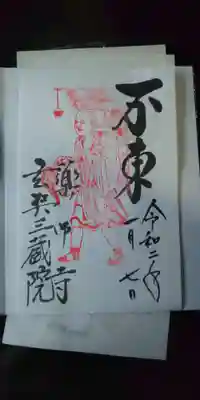 不東
令和二年
一月七日
薬師寺
玄奘三蔵院